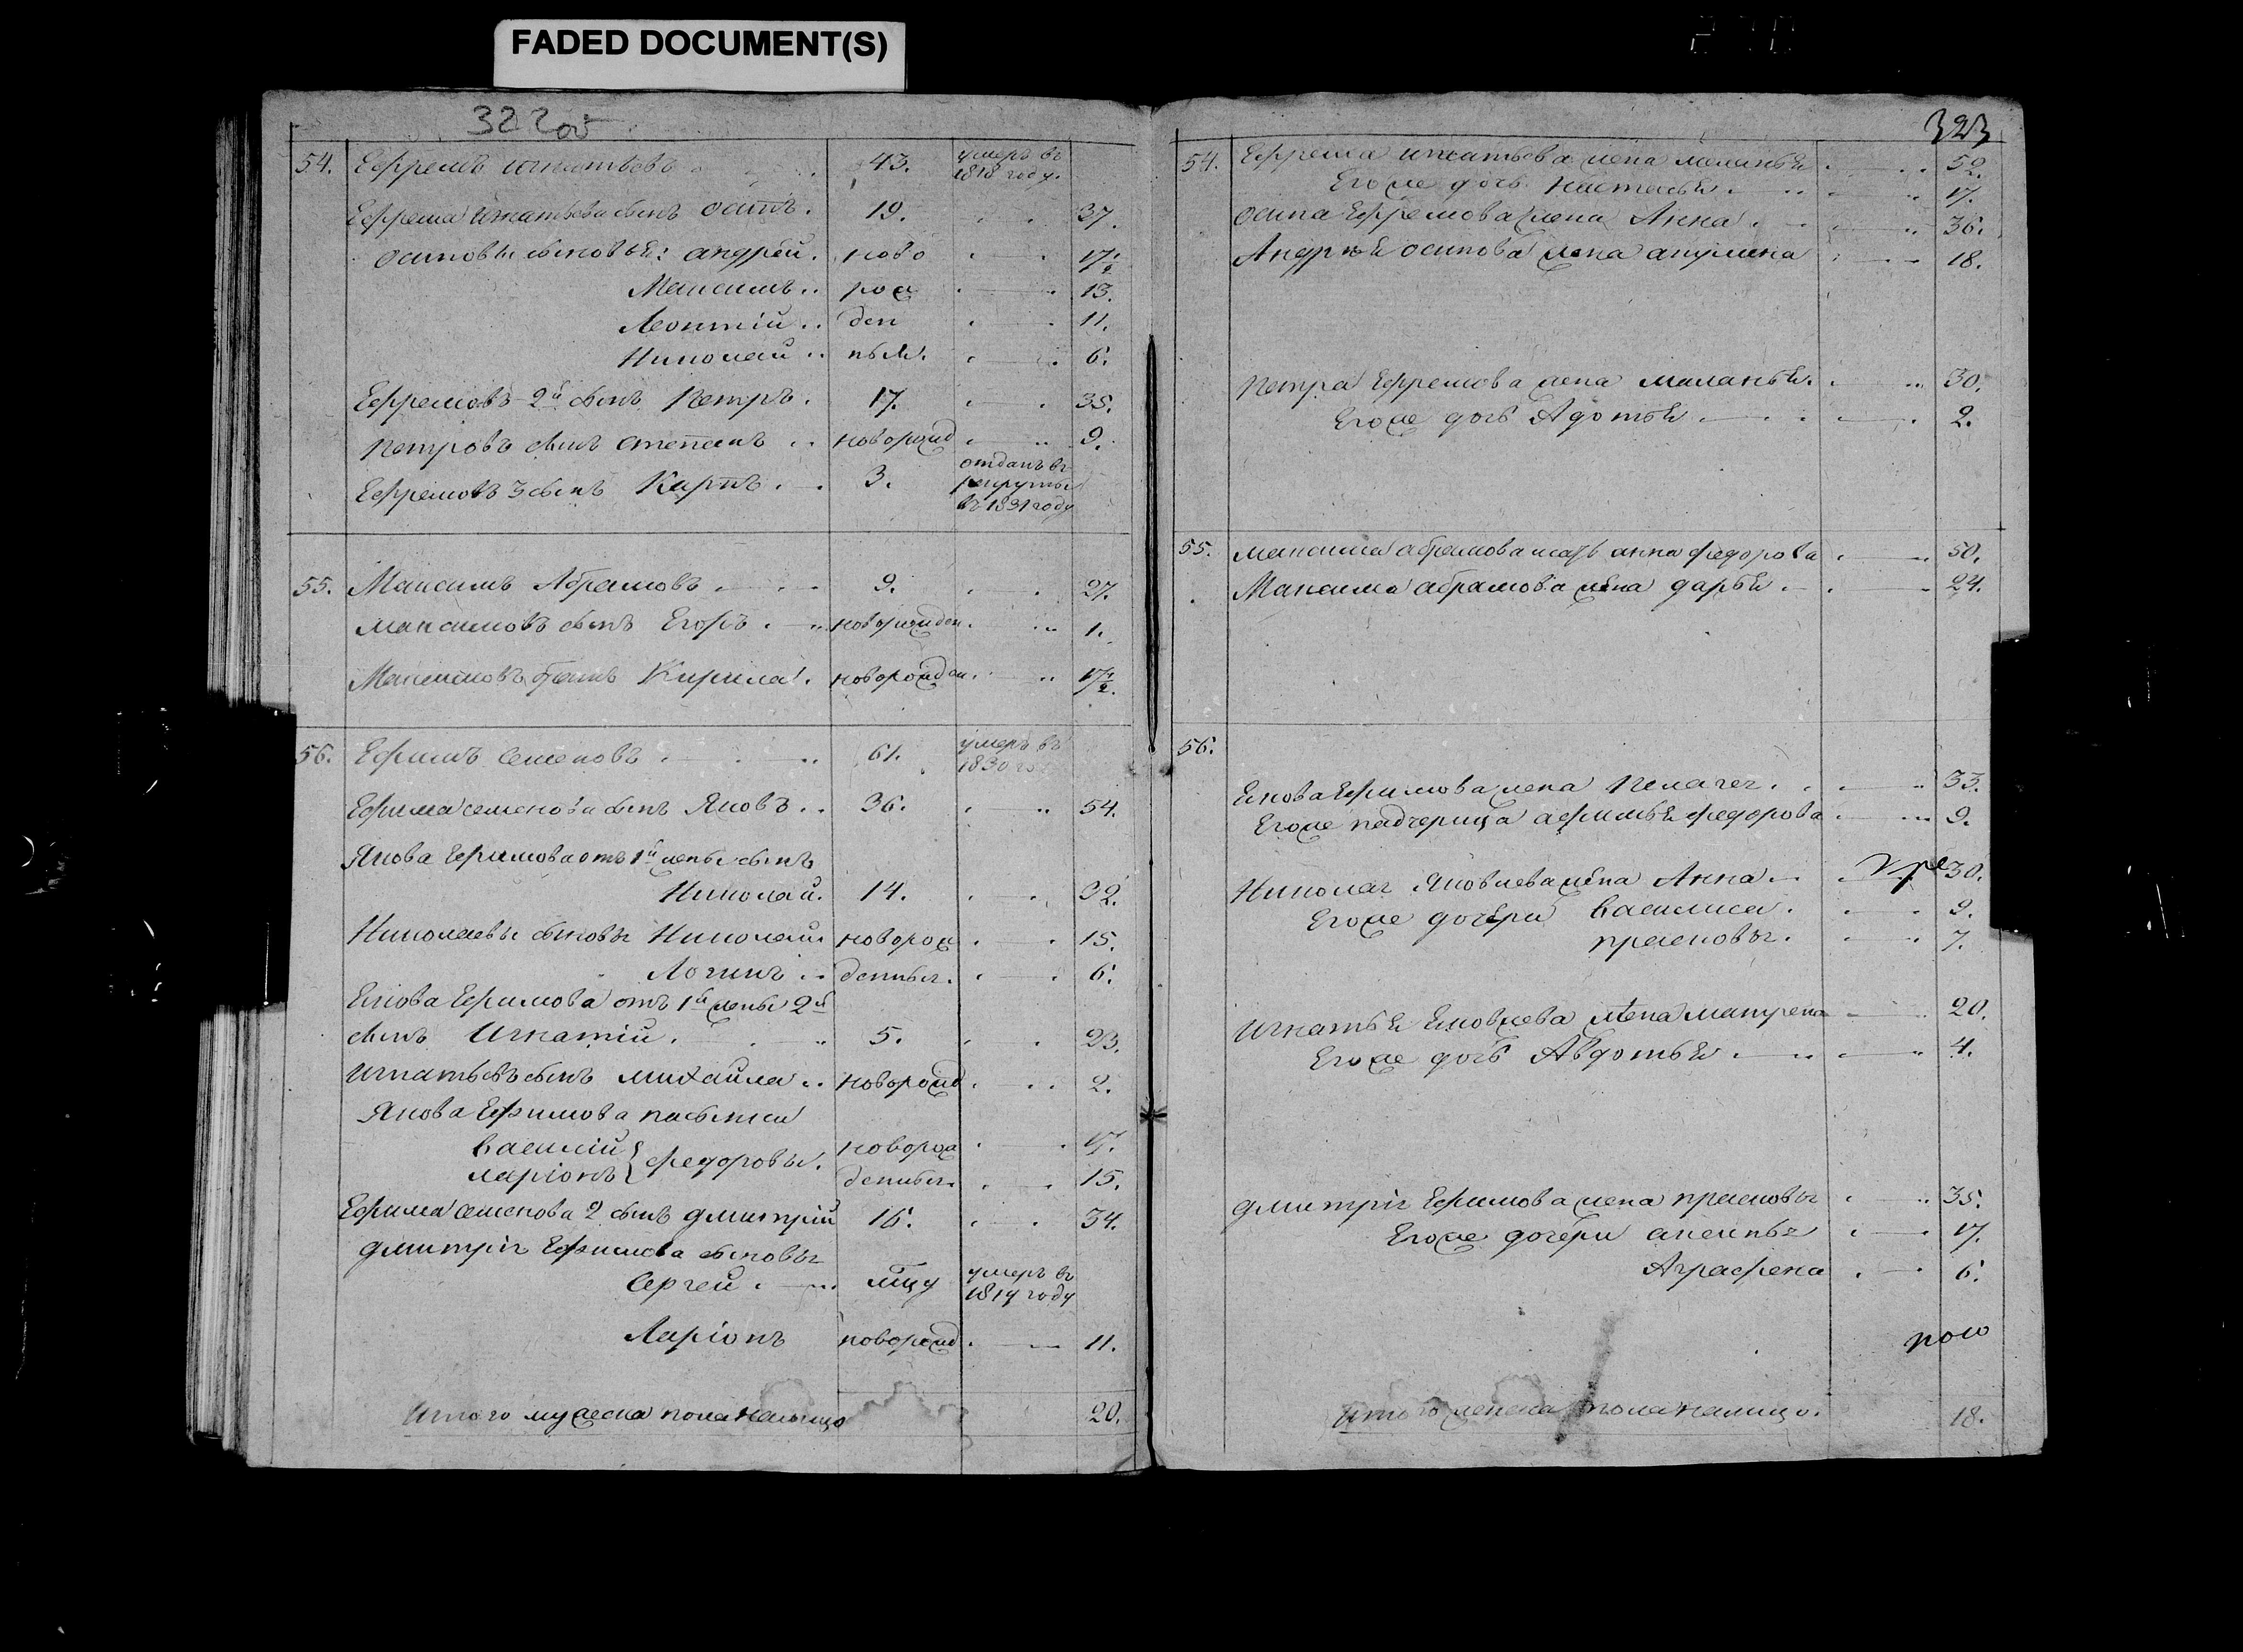 FADED DOCUMENT(S)
322об
54. Ефремъ игнатьевъ 43. умеръ въ 1818 году.
Ефрема Игнатьева сынъ осипъ. 19. 37.
осиповы сыновьЯ: андрей. ново 17 1/2
Максимъ.. рож 13.
Леонтий.. ден 11.
Николай.. ныЯ. 6.
Ефремовъ 2й сынъ Петръ. 17. 35.
Петровъ сынъ степанъ.. новорожд 9.
Ефремовъ 3 сынъ Карпъ. 3. отданъ въ рекруты въ 1831 году
55. Максимъ Абрамовъ 9. 27.
Максимовъ сынъ Егоръ. новорожден. 1.
Максимовъ братъ Кирила. новорожден. 17 1/2.
56. Ефимъ семеновъ. 61. умеръ въ 1830 го
Ефима семенова сынъ Яковъ.. 36. 54.
Якова Ефимова отъ 1й жены сынъ
Николай. 14. 32.
Николаевы сыновьЯ Николай новорож 15.
Логинъ.. денныЯ. 6.
Якова Ефимова отъ 1й жены 2й
сынъ Игнатій. 5. 23.
Игнатьевъ сынъ михайла.. новорожд. 2.
Якова Ефимова пасынки
василій новорож 17.
ларіонъ } федоровы. денныЯ. 15.
Ефима семенова 2 сынъ дмитрій 16. 34.
дмитріЯ Ефимова сыновьЯ
Сергей. мцу умеръ въ 1817 году
Ларіонъ новорожд. 11.
Итого мужеска пола налицо 20.
323
54. Ефрема игнатьева жена маланьЯ 52.
Его же дочь настасьЯ. 17.
осипа Ефремова жена Анна. 36.
АндрѣЯ осипова жена акулина 18.
Петра Ефремова жена маланьЯ. 30.
Его же дочь АдотьЯ 2.
55. максима абрамова мать анна федорова 50.
Максима абрамова жена дарьЯ. 24.
56.
Якова Ефимова жена ПелагеЯ. 33.
Его же падчерица афимьЯ федорова 9.
НиколаЯ Яковлева жена Анна 30.
Его же дочери василиса. 9.
прасковьЯ. 7.
ИгнатьЯ Яковлева жена матрена 20.
Его же дочь АвдотьЯ. 4.
дмитріЯ Ефимова жена прасковьЯ 35.
Его же дочери аксиньЯ 17.
Аграфена 6.
Итого женска пола налицо. 18.